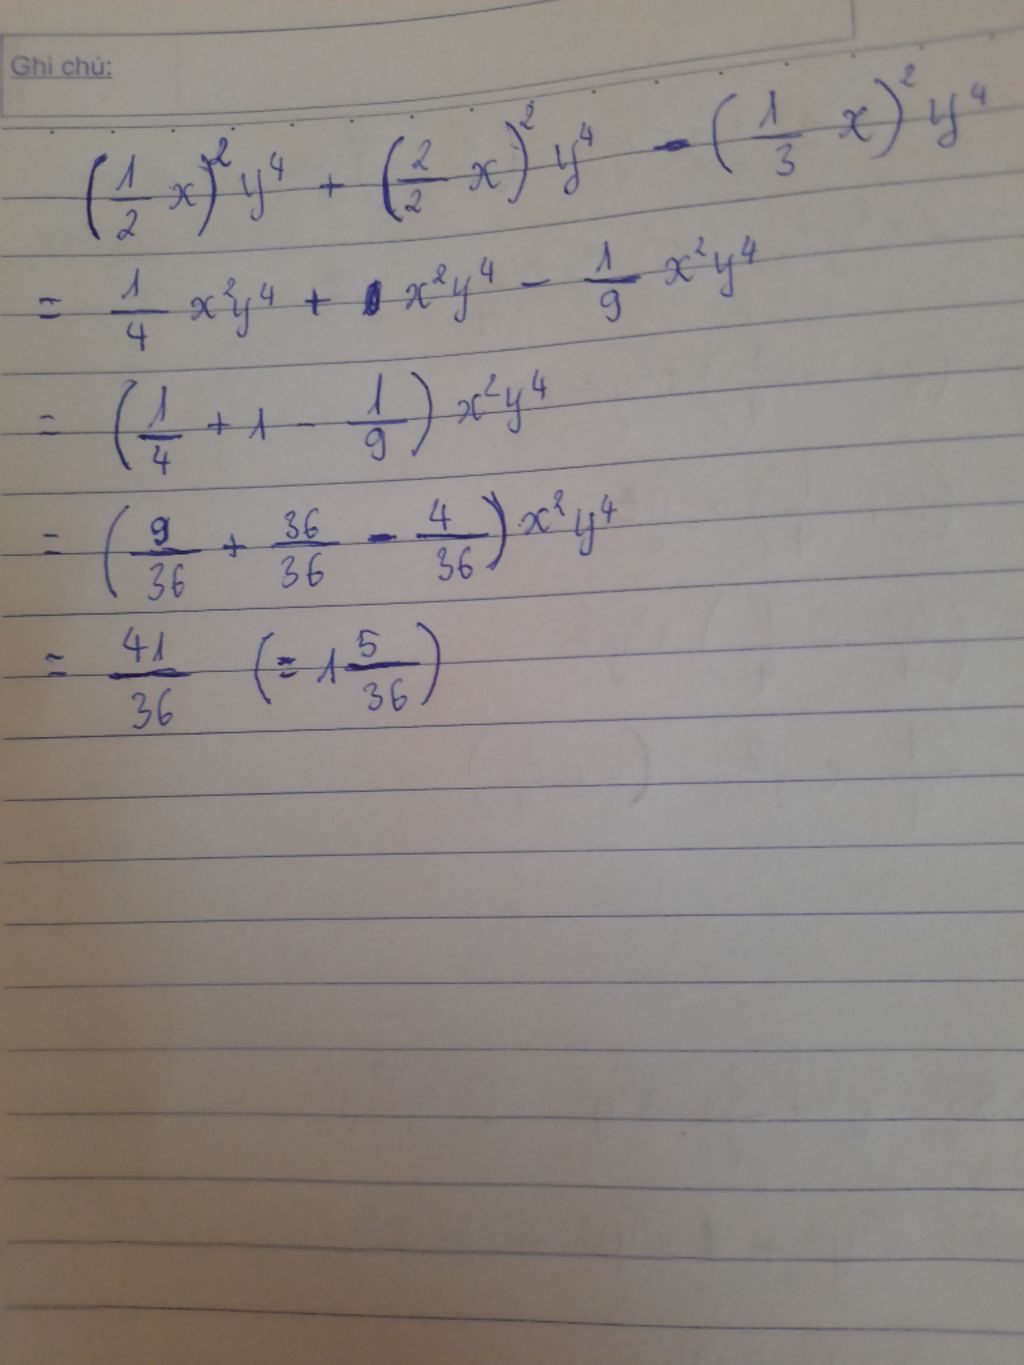 Ghi chú:
(1/2 x)² y⁴ + (2/2 x)² y⁴ - (1/3 x)² y⁴
= 1/4 x²y⁴ + x²y⁴ - 1/9 x²y⁴
= (1/4 + 1 - 1/9) x²y⁴
= (9/36 + 36/36 - 4/36) x²y⁴
= 41/36 (= 1 5/36)